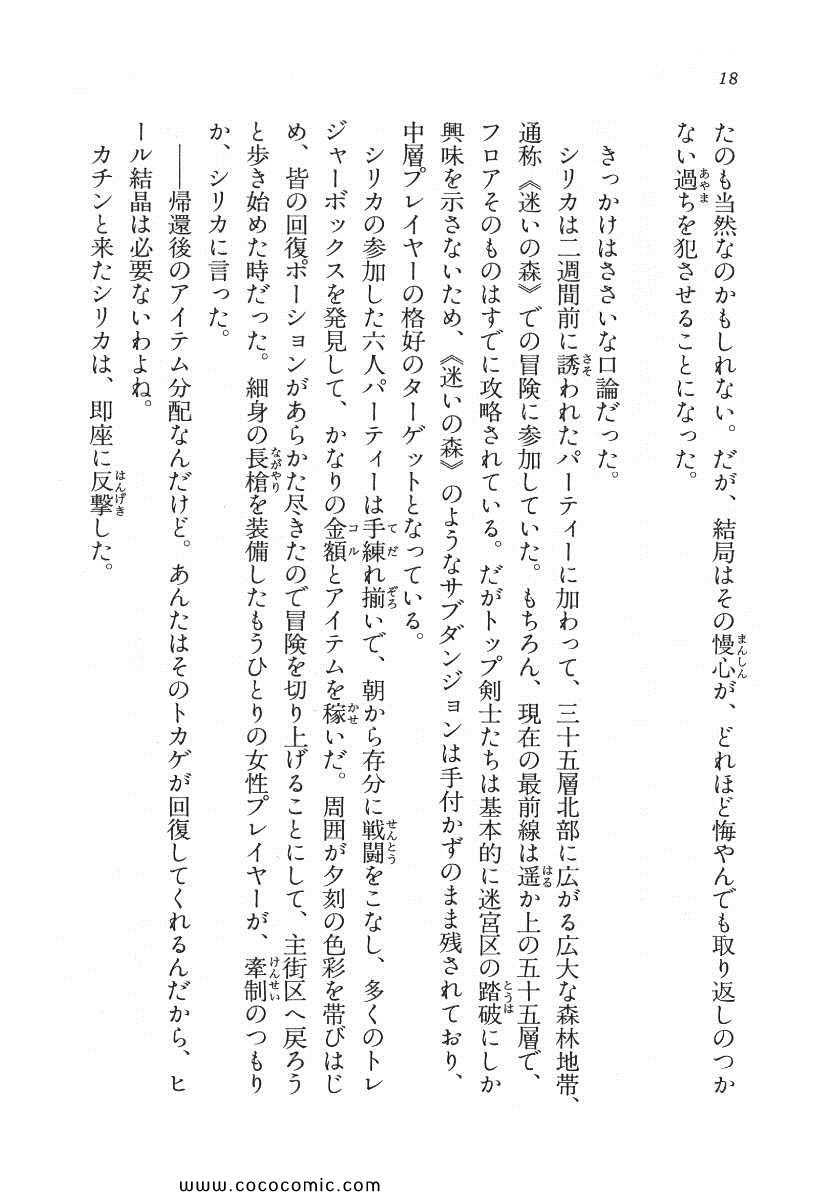 18
たのも当然なのかもしれない。だが、結局はその慢心が、どれほど悔やんでも取り返しのつか
ない過ちを犯させることになった。
きっかけはささいな口論だった。
シリカは二週間前に誘われたパーティーに加わって、三十五層北部に広がる広大な森林地帯、
通称《迷いの森》での冒険に参加していた。もちろん、現在の最前線は遥か上の五十五層で、
フロアそのものはすでに攻略されている。だがトップ剣士たちは基本的に迷宮区の踏破にしか
興味を示さないため、《迷いの森》のようなサブダンジョンは手付かずのまま残されており、
中層プレイヤーの格好のターゲットとなっている。
シリカの参加した六人パーティーは手練れ揃いで、朝から存分に戦闘をこなし、多くのトレ
ジャーボックスを発見して、かなりの金額とアイテムを稼いだ。周囲が夕刻の色彩を帯びはじ
め、皆の回復ポーションがあらかた尽きたので冒険を切り上げることにして、主街区へ戻ろう
と歩き始めた時だった。細身の長槍を装備したもうひとりの女性プレイヤーが、牽制のつもり
か、シリカに言った。
――帰還後のアイテム分配なんだけど。あんたはそのトカゲが回復してくれるんだから、ヒ
ール結晶は必要ないわよね。
カチンと来たシリカは、即座に反撃した。
www.cococomic.com